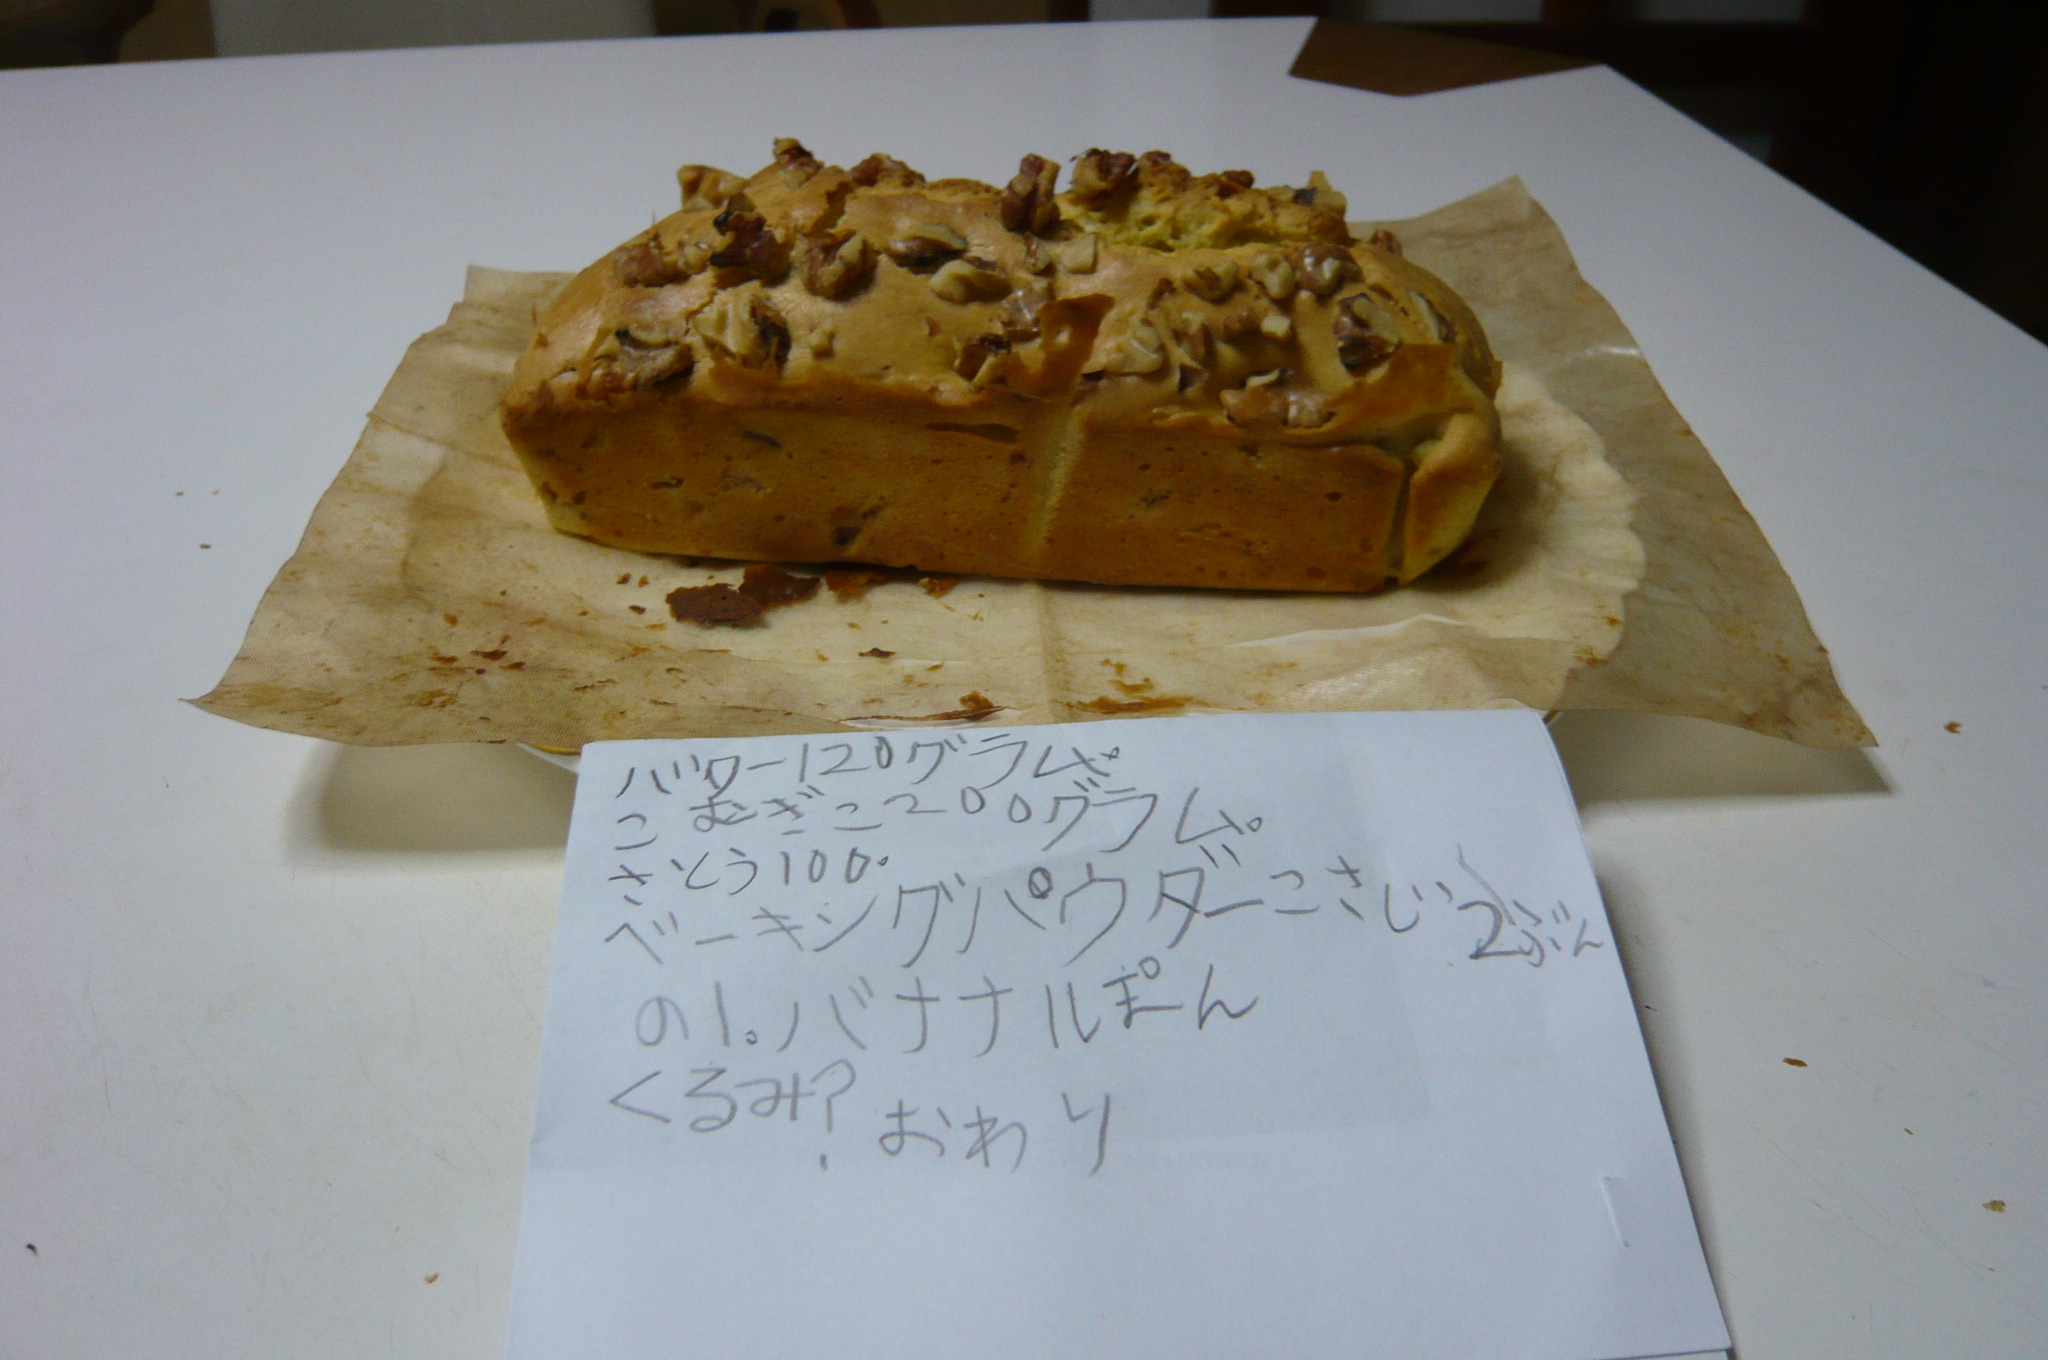 バター120グラム。
こむぎこ200グラム。
さとう100。
ベーキングパウダーこさじ2ぶん
の1。バナナ1ぽん
くるみ?
おわり